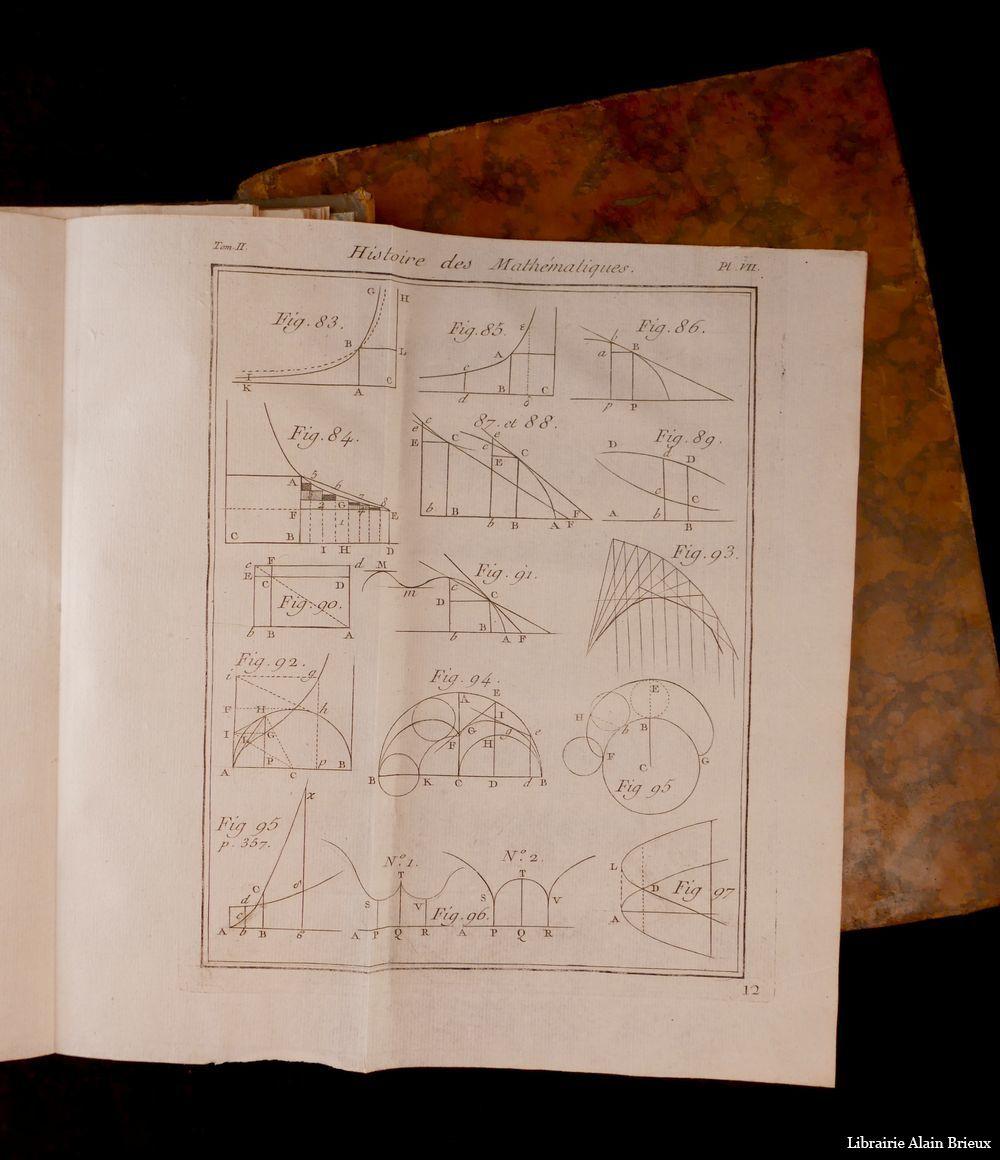 Tom. II. Histoire des Mathématiques. Pl. VII.
G H
Fig. 83. B L
I K A C
Fig. 85. ε
A c
d B 6 C
Fig. 86.
a B
p P
Fig. 84.
A 5 6 7 8
2 G 4
F 1 E
C B I H D
87. et 88.
e c C e c
E E C
b B b B A F F
Fig. 89.
D d D
c C
A b B
e F d M
E C D m
Fig. 90.
b B A
Fig. 91.
c C
D B
b A F
Fig. 93.
Fig. 92.
i g
F H h
I L G
A P C p B
Fig. 94.
A E
I
F G H g e
B K C D d B
E
H b B
F C G
Fig 95
Fig 95
p. 357.
x
C δ
d
c
A b B 6
N.º 1. N.º 2.
T T
S V S V
Fig. 96.
A P Q R A P Q R
L
D Fig 97
A
12
Librairie Alain Brieux